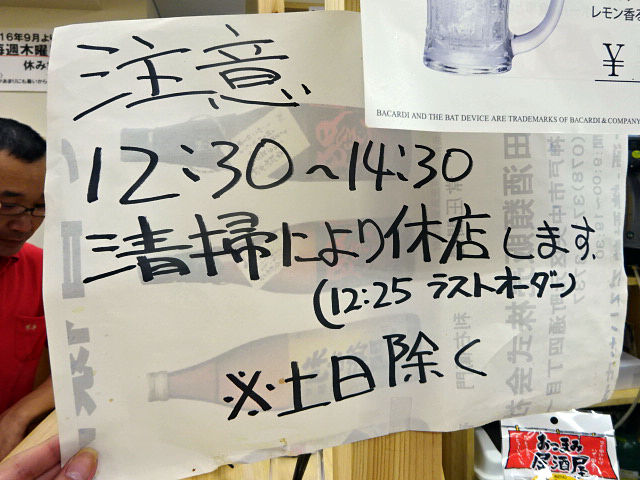 16年9月よ
毎週木曜
休み
レモン香る
¥
BACARDI AND THE BAT DEVICE ARE TRADEMARKS OF BACARDI & COMPANY
注意
12:30~14:30
清掃により休店します。
(12:25 ラストオーダー)
※土日除く
おつまみ
居酒屋